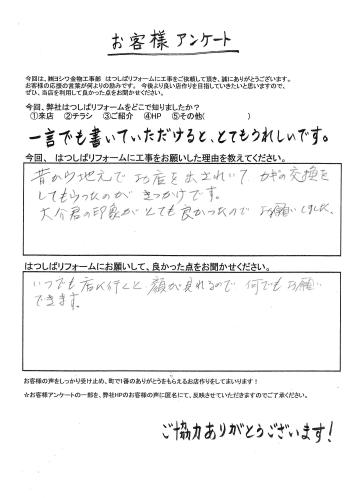 お客様アンケート
今回は、㈱ヨシワ金物工事部 はつしばリフォームに工事をご依頼して頂き、誠にありがとうございます。
お客様の応援の言葉が何よりの励みです。 今後より良い店作りを目指していきたいと思いますので、
ぜひ、当店を利用して良かった点をお聞かせください。
今回、弊社はつしばリフォームをどこで知りましたか?
①来店 ②チラシ ③ご紹介 ④HP ⑤その他( )
一言でも書いていただけると、とてもうれしいです。
今回、 はつしばリフォームに工事をお願いした理由を教えてください。
昔から地元でお店を出されいて カギの交換を
してもらったのが きっかけです。
大介君の印象がとても良かったので お願いしました。
はつしばリフォームにお願いして、良かった点をお聞かせください。
いつでも店に行くと 顔が見れるので 何でもお願い
できます。
お客様の声をしっかり受け止め、町で1番のありがとうをもらえるお店作りをしてまいります!
☆お客様アンケートの一部を、弊社HPのお客様の声に匿名にて、反映させていただきますのでご了承ください。
ご協力ありがとうございます!